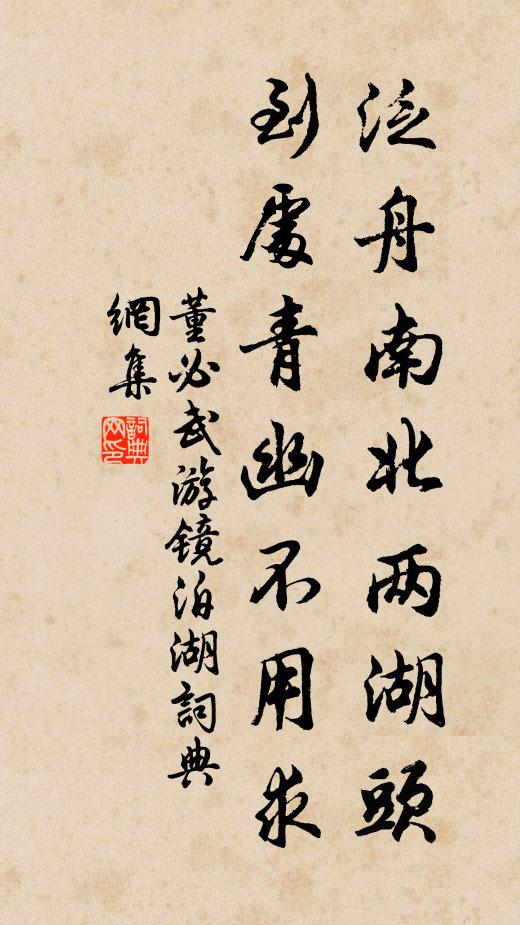 泛舟南北两湖頭
到處青幽不用求
董必武游镜泊湖詞典
網集
詞典
网印